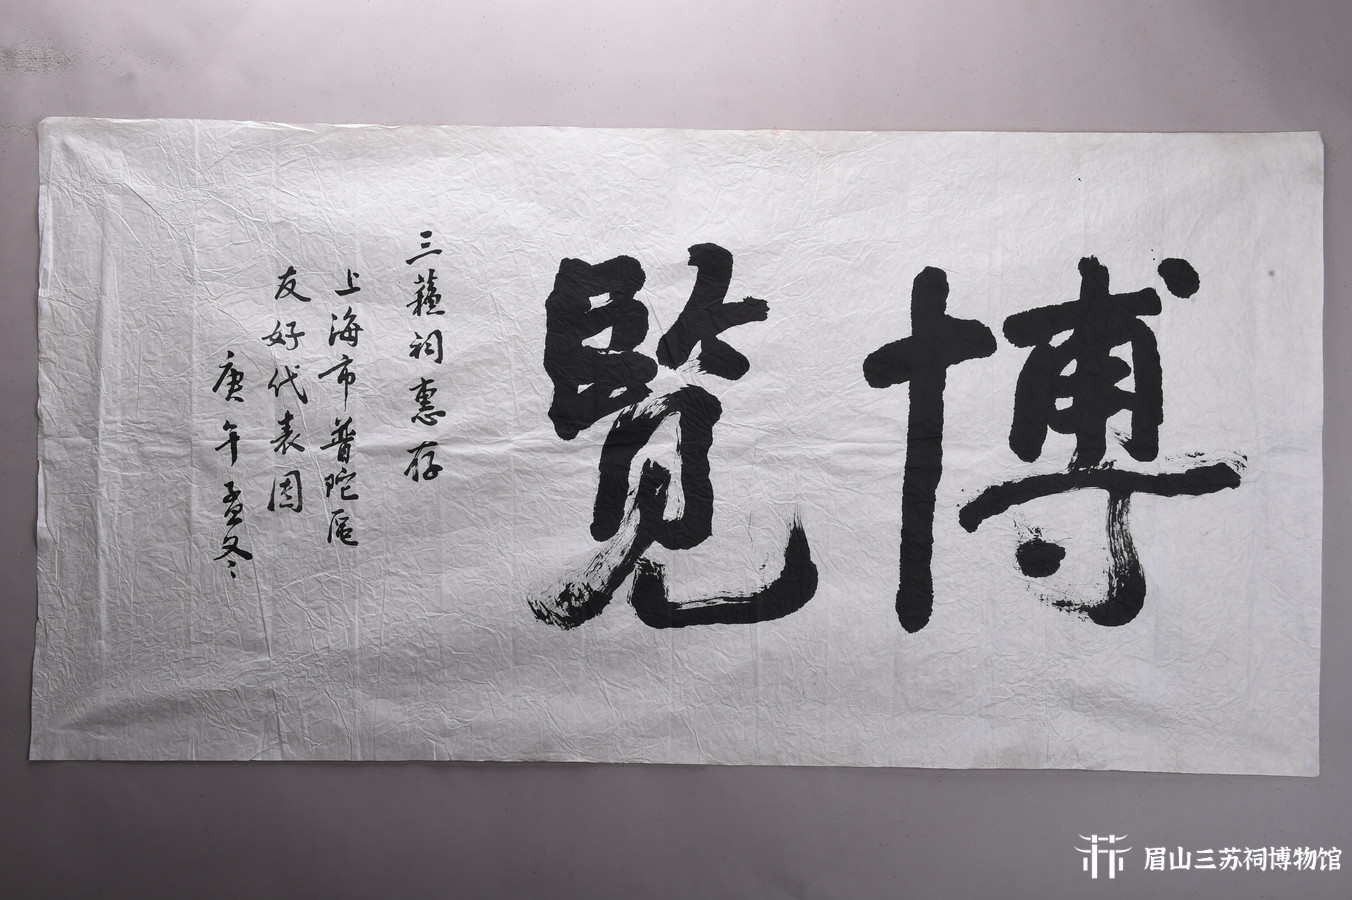 博覽
三蘓祠惠存
上海市普陀區
友好代表团
庚午孟冬
眉山三苏祠博物馆